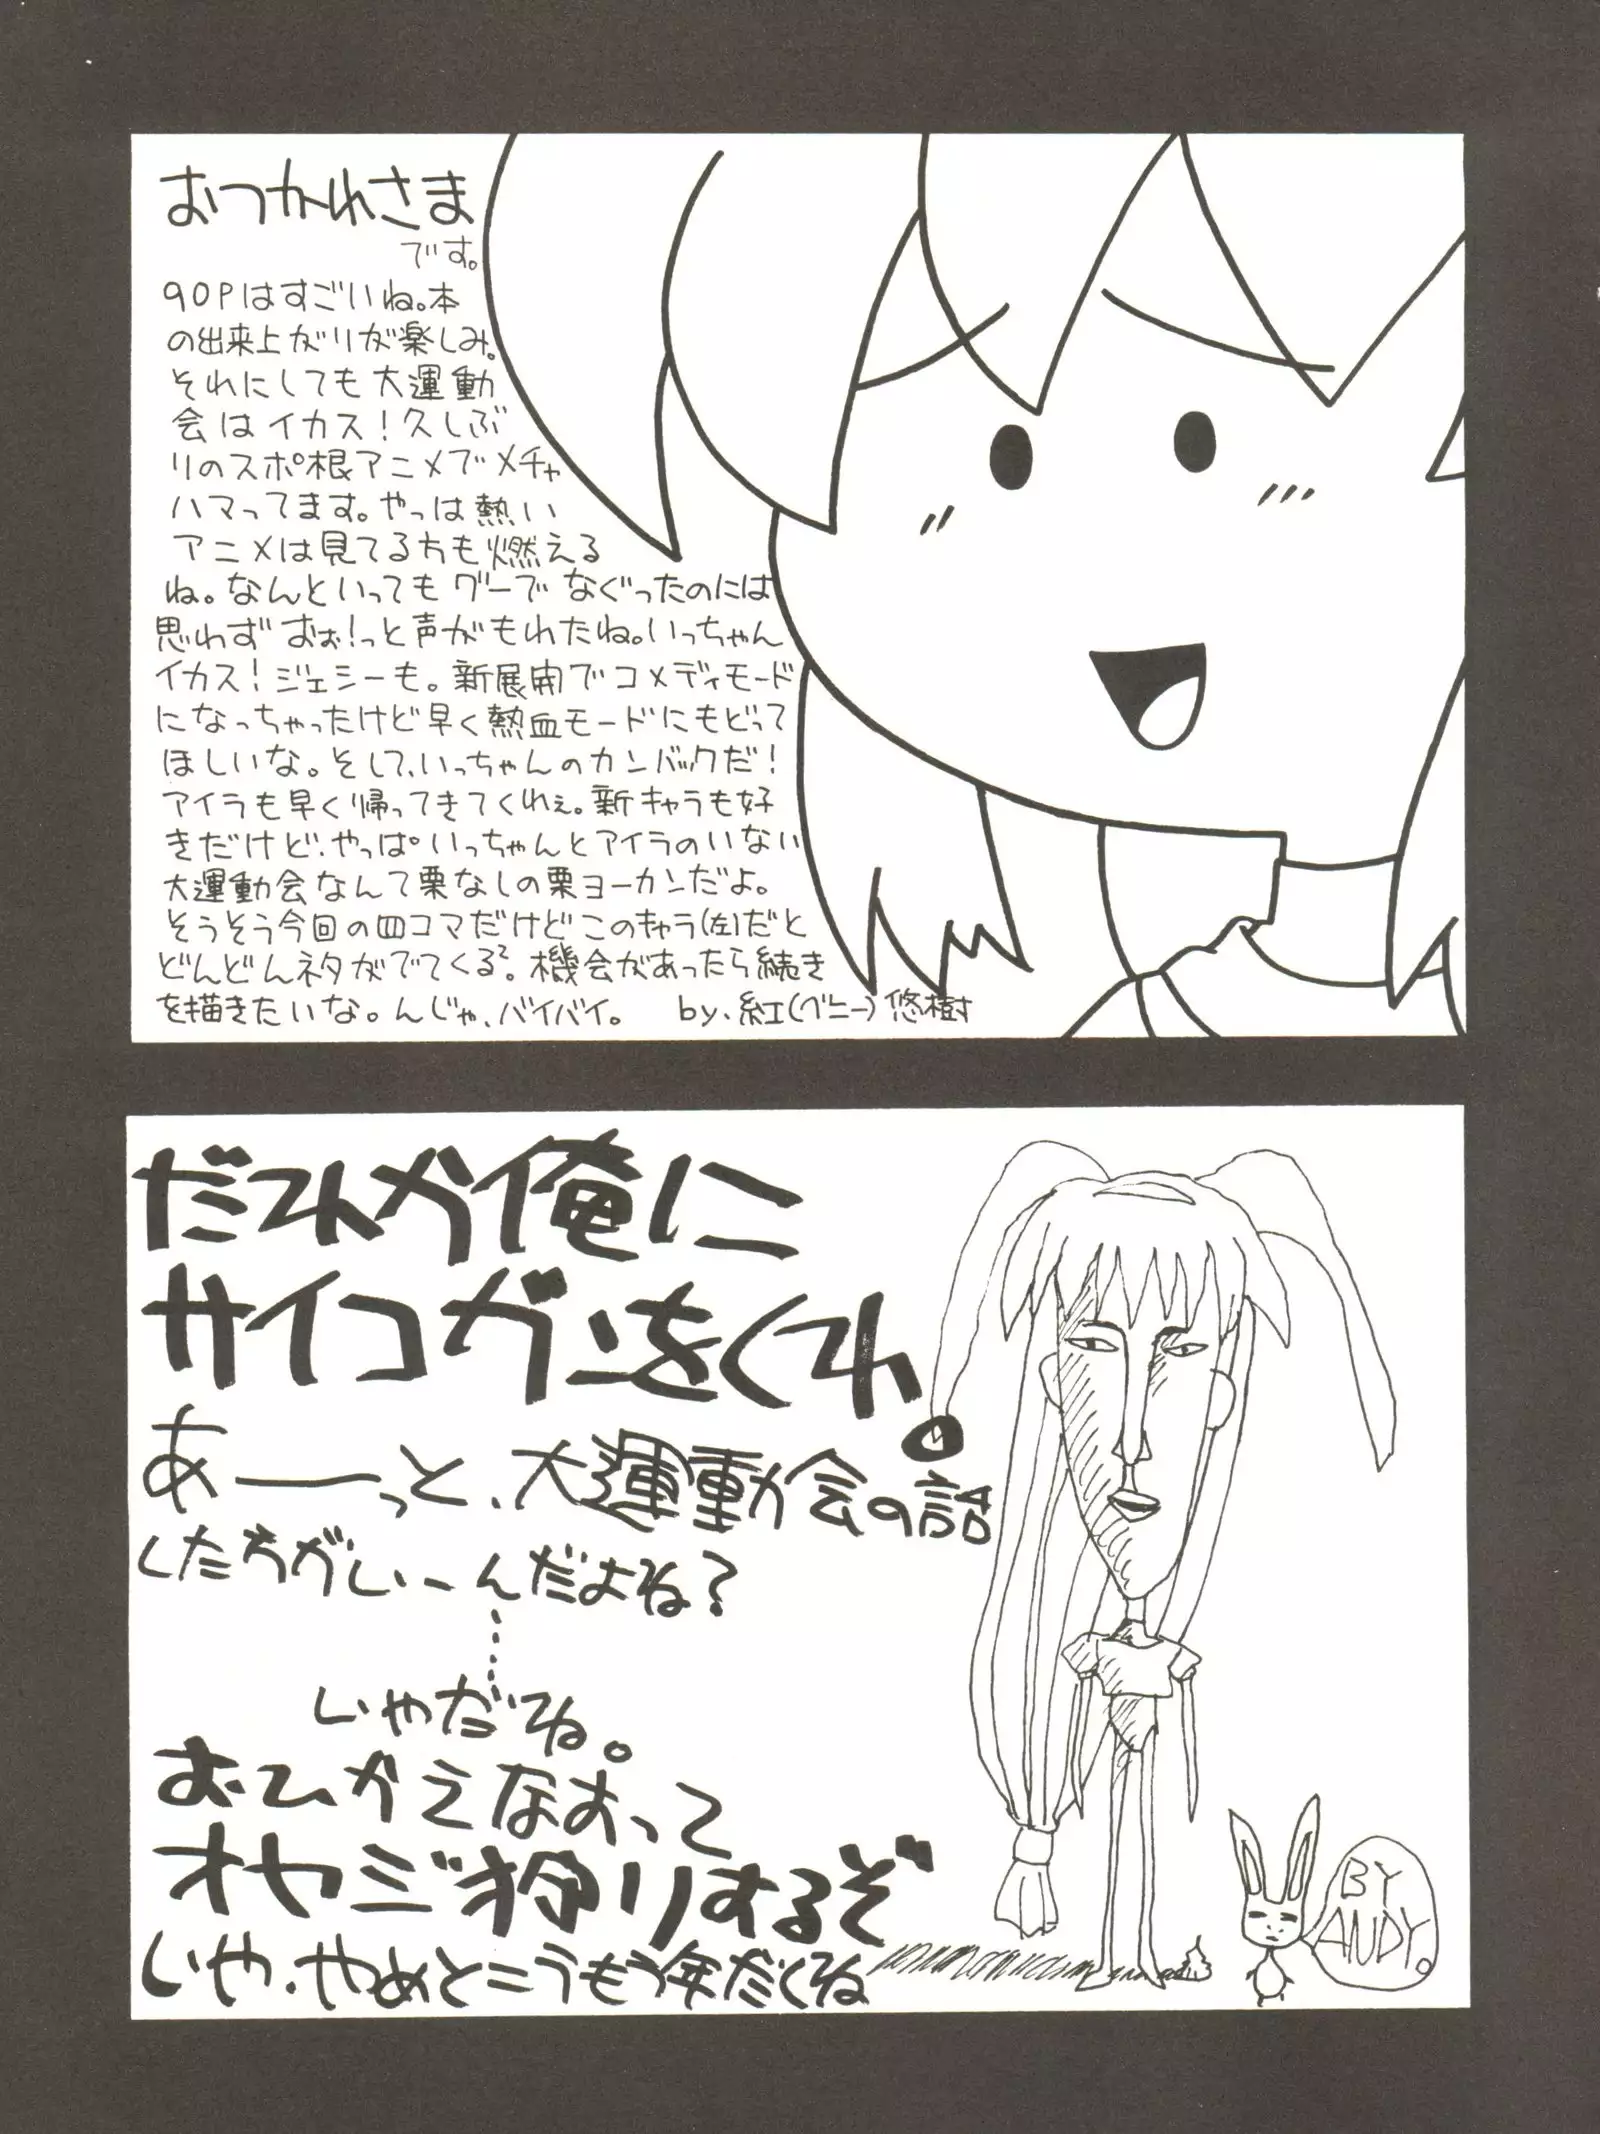 おつかれさま
です。
90Pはすごいね。本
の出来上がりが楽しみ。
それにしても大運動
会はイカス！久しぶ
りのスポ根アニメでメチャ
ハマってます。やっぱ熱い
アニメは見てる方も燃える
ね。なんといってもグーでなぐったのには
思わずおぉ！っと声がもれたね。いっちゃん
イカス！ジェシーも。新展開でコメディモード
になっちゃったけど早く熱血モードにもどって
ほしいな。そして、いっちゃんのカンバックだ！
アイラも早く帰ってきてくれぇ。新キャラも好
きだけど、やっぱいっちゃんとアイラのいない
大運動会なんて栗なしの栗ヨーカンだよ。
そうそう今回の四コマだけどこのキャラ(左)だと
どんどんネタがでてくる²。機会があったら続き
を描きたいな。んじゃ、バイバイ。 by、紅(グニー)悠樹
だれか俺に
サイコガンをくれ。
あーーっと、大運動会の話
したろがしぃーんだよね？
……
じゃだてね。
おひかえなすって
オヤジ狩りするぞ
いや、やめとこうもう年だくてね
BY
ANDY。